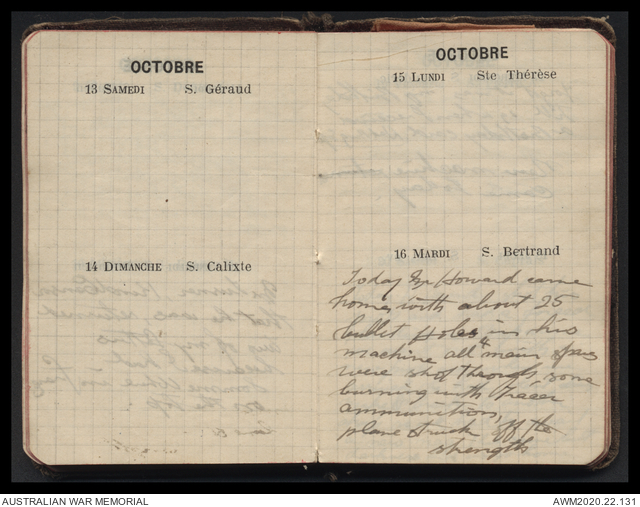 OCTOBRE
13 SAMEDI S. Géraud
14 DIMANCHE S. Calixte
OCTOBRE
15 LUNDI Ste Thérèse
16 MARDI S. Bertrand
Today Mr Howard came
home with about 25
bullet holes in his
machine all 4 main spars
were shot through, some
burning with tracer
ammunition,
plane struck off the
strength
AUSTRALIAN WAR MEMORIAL
AWM2020.22.131